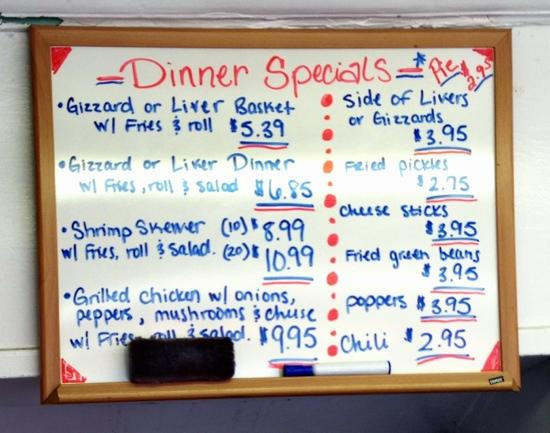 =Dinner Specials=
* Pie $2.95
•Gizzard or Liver Basket
w/ Fries & roll $5.39
•Gizzard or Liver Dinner
w/ Fries, roll & salad $6.85
•Shrimp Skewer (10) $8.99
w/ Fries, roll & salad. (20) $10.99
•Grilled chicken w/ onions,
peppers, mushrooms & cheese
w/ Fries, roll & salad. $9.95
Side of Livers
or Gizzards
$3.95
Fried pickles
$2.75
Cheese sticks
$3.95
Fried green beans
$3.95
poppers $3.95
Chili $2.95